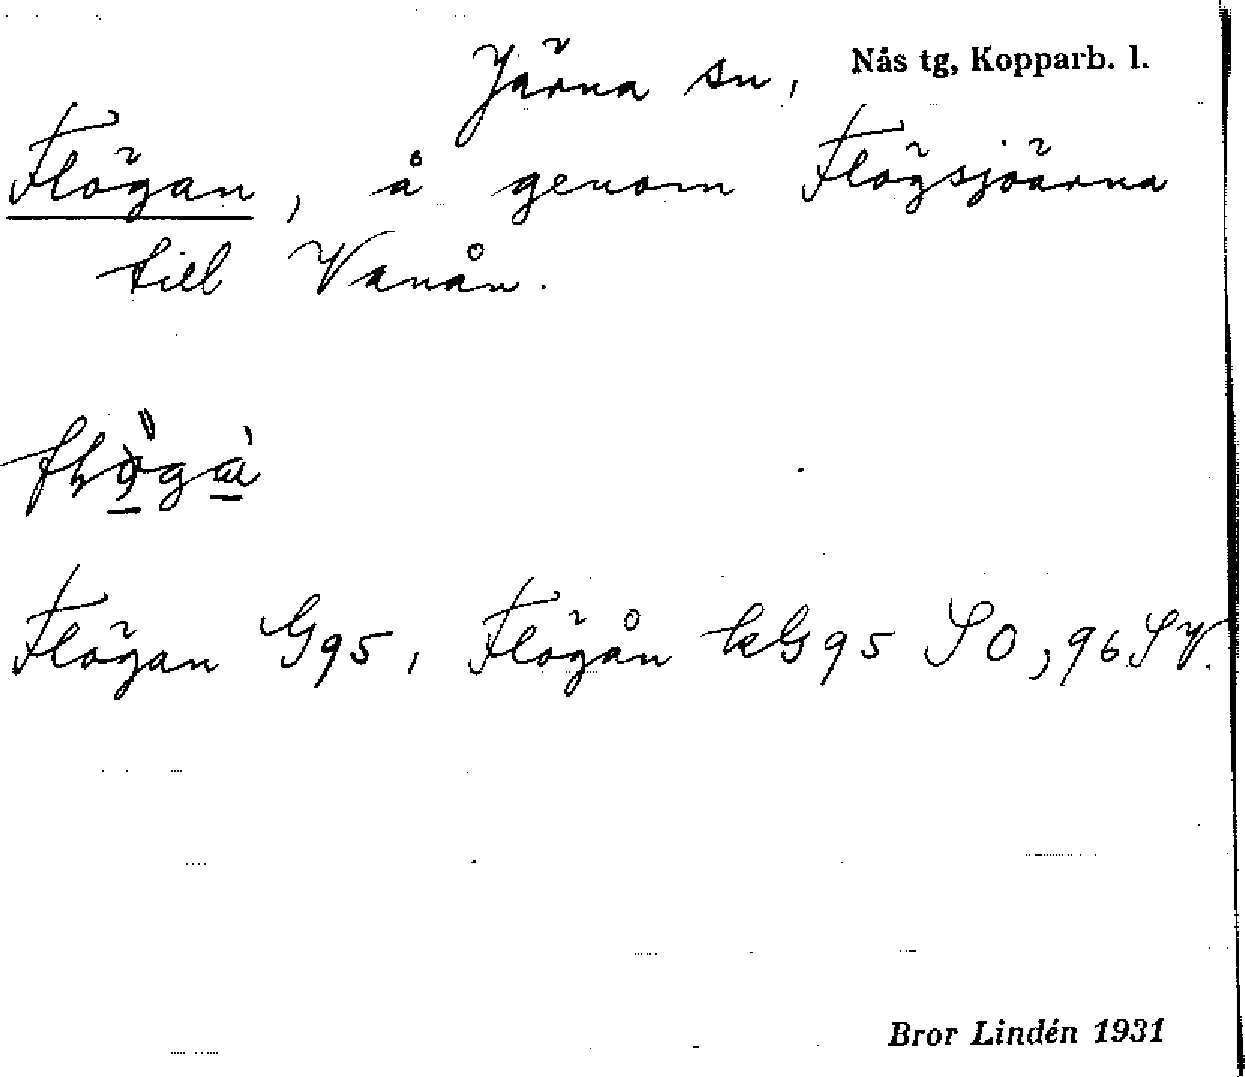 Järna sn, Nås tg, Kopparb. l.
Flögan, å genom Flögsjöarna
till Vanån.
Flögan G95, Flögån kG95 SO, 96 SV.
Bror Lindén 1931